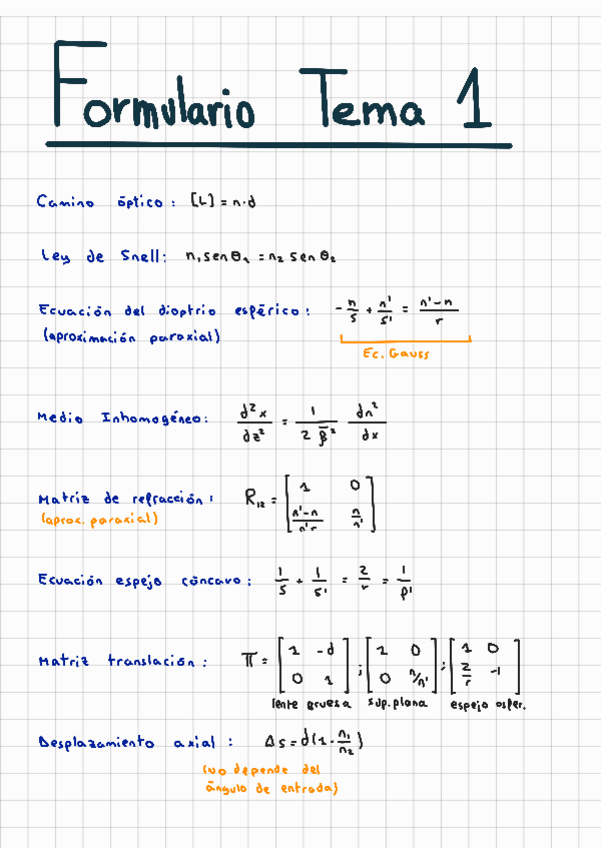 Formulario Tema 1
Camino óptico: [L] = n·d
Ley de Snell: n₁ sen θ₁ = n₂ sen θ₂
Ecuación del dioptrio esférico: -n/s + n'/s' = (n'-n)/r
(aproximación paraxial)
Ec. Gauss
Medio Inhomogéneo: d²x/dz² = 1/(2 β̄²) dn²/dx
Matriz de refracción: R₁₂ = [1 0; (n'-n)/(n'r) n/n']
(aprox. paraxial)
Ecuación espejo cóncavo: 1/s + 1/s' = 2/r = 1/f'
Matriz translación: π = [1 -d; 0 1]; [1 0; 0 n/n']; [1 0; 2/r -1]
lente gruesa sup. plana espejo esfer.
Desplazamiento axial: Δs = d(1 - n₁/n₂)
(no depende del
ángulo de entrada)